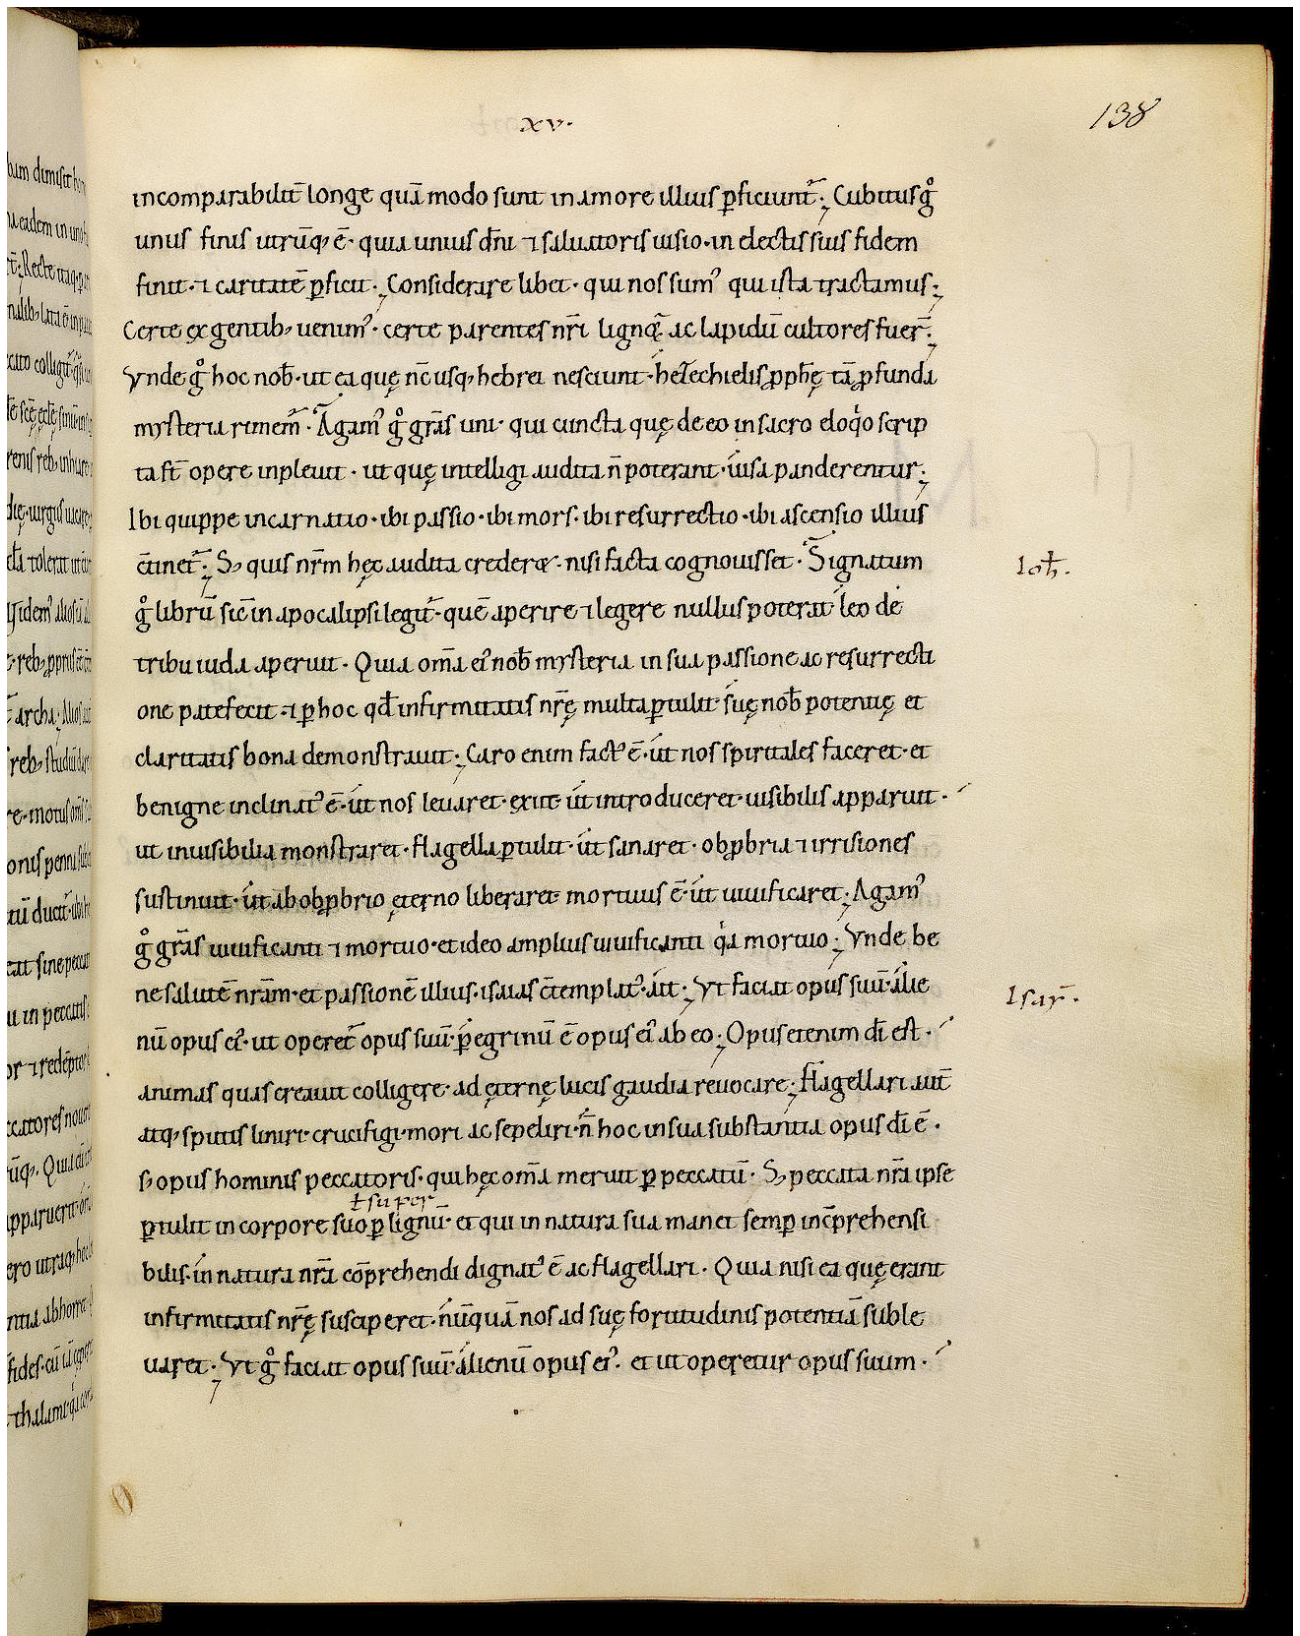 xv.
138
incomparabilit̄ longe quā modo sunt in amore illius ꝑficiunt̄; Cubitus gͦ
unus finis utrūq; ē· quia unius dn̄i ⁊ saluatoris uisio· in electis suis fidem
finit· ⁊ caritatē ꝑficit; Considerare libet· qui nos sumꝰ qui ista tractamus;
Certe ex gentib; uenimꝰ· certe parentes nr̄i lignoꝝ ac lapidū cultores fuer̄;
Vnde gͦ hoc nob̄· ut ea quę nc̄ usq; hebrei nesciunt· hezechielis ꝓph̄ę tā ꝓfunda
mysteria rimem̄· Agamꝰ gͦ grās uni· qui cuncta quę de eo in sacro eloqͥo scrip
ta st̄ opere inpleuit· ut quę intelligi audita n̄ poterant· uisa panderentur;
Ibi quippe incarnatio· ibi passio· ibi mors· ibi resurrectio· ibi ascensio illius
c̄tinet̄; S; quis nr̄m hęc audita crederet· nisi facta cognouisset· Signatum
Ioh̄.
gͦ librū sic̄ in apocalipsi legit̄· quē aperire ⁊ legere nullus poterat· leo de
tribu iuda aperuit· Quia om̄a eiꝰ nob̄ mysteria in sua passione ac resurrecti
one patefecit· ⁊ ꝑ hoc qd̄ infirmitatis nr̄ę multa ꝑtulit· suę nob̄ potentię et
claritatis bona demonstrauit; Caro enim factꝰ ē· ut nos spiritales faceret· et
benigne inclinatꝰ ē· ut nos leuaret· exiit· ut introduceret· uisibilis apparuit·
ut inuisibilia monstraret· flagella ꝑtulit· ut sanaret· obꝓbria ⁊ irrisiones
sustinuit· ut ab obꝓbrio ęterno liberaret· mortuus ē· ut uiuificaret; Agamꝰ
gͦ grās uiuificanti ⁊ mortuo· et ideo amplius uiuificanti qͥa mortuo; Vnde be
ne salutē nrām· et passionē illius· isaias c̄templatꝰ· ait; Vt faciat opus suū· alie
Isaỹ.
nū opus eiꝰ· ut operet̄ opus suū· ꝑegrinū ē opus eiꝰ ab eo; Opus etenim dī est·
animas quas creauit colligere· ad ęternę lucis gaudia reuocare; Flagellari aut̄
atq; sputis liniri· crucifigi· mori ac sepeliri· n̄ hoc in sua substantia opus dī ē·
s; opus hominis peccatoris· qui hęc om̄a meruit ꝑ peccatū· S; peccata nr̄a ipse
ł super
ꝑtulit in corpore suo ꝑ lignū· et qui in natura sua manet semꝑ inc̄prehensi
bilis· in natura nr̄a cōprehendi dignatꝰ ē ac flagellari· Quia nisi ea quę erant
infirmitatis nr̄ę susciperet· nūquā nos ad suę fortitudinis potentiā suble
uaret; Vt gͦ faciat opus suū· alienū opus eiꝰ· et ut operetur opus suum·